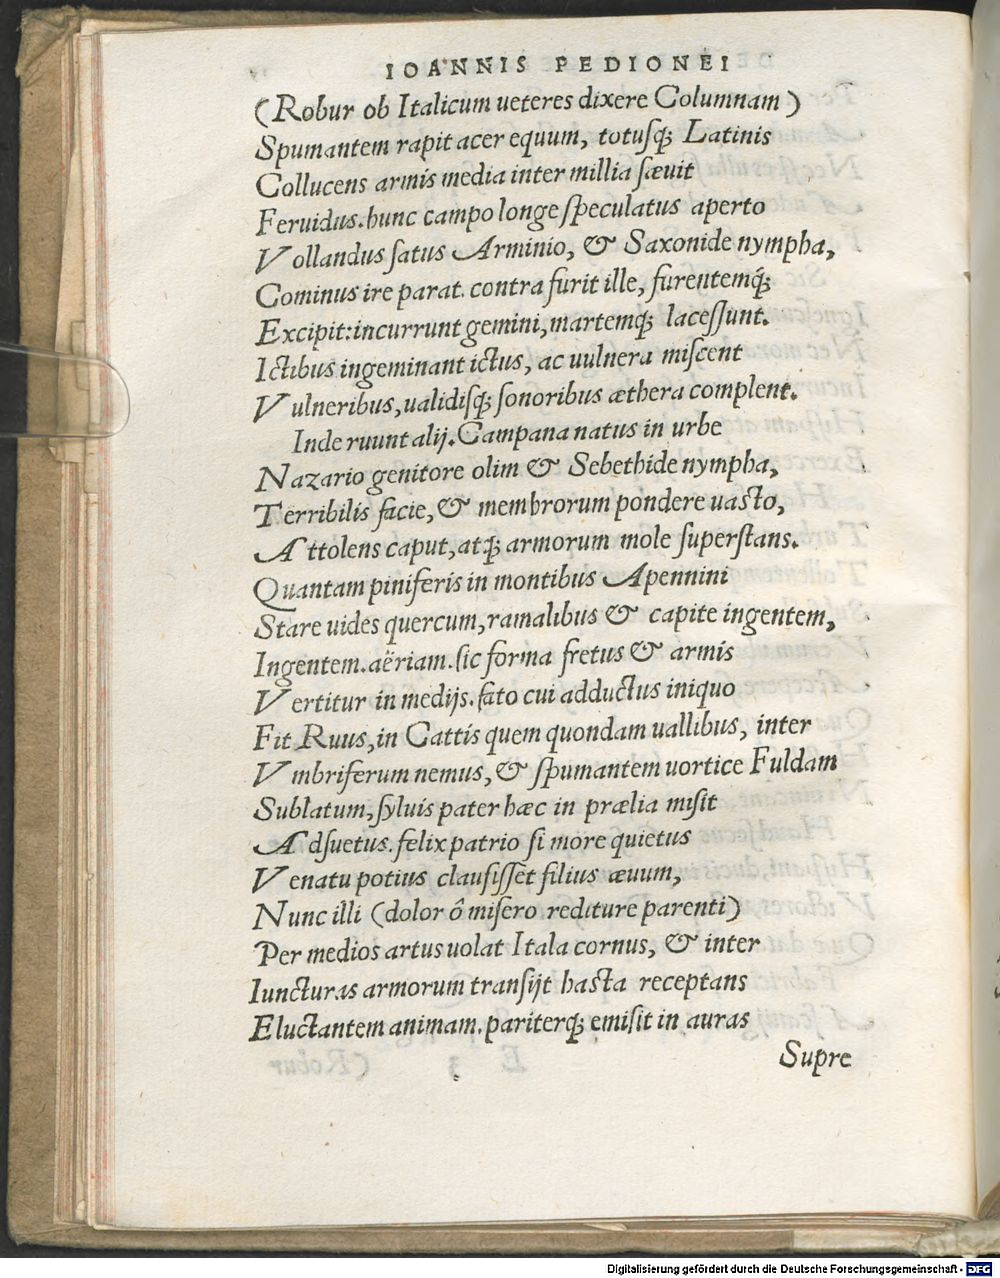 IOANNIS PEDIONEI
(Robur ob Italicum ueteres dixere Columnam)
Spumantem rapit acer equum, totusq́; Latinis
Collucens armis media inter millia sæuit
Feruidus. hunc campo longe speculatus aperto
Vollandus satus Arminio, & Saxonide nympha,
Cominus ire parat. contra furit ille, furentemq́;
Excipit: incurrunt gemini, martemq́; lacessunt.
Ictibus ingeminant ictus, ac uulnera miscent
Vulneribus, ualidisq́; sonoribus æthera complent.
Inde ruunt alij. Campana natus in urbe
Nazario genitore olim & Sebethide nympha,
Terribilis facie, & membrorum pondere uasto,
Attolens caput, atq́; armorum mole superstans.
Quantam piniferis in montibus Apennini
Stare uides quercum, ramalibus & capite ingentem,
Ingentem. aëriam. sic forma fretus & armis
Vertitur in medijs. fato cui adductus iniquo
Fit Ruus, in Cattis quem quondam uallibus, inter
Vmbriferum nemus, & spumantem uortice Fuldam
Sublatum, syluis pater hæc in prælia misit
Adsuetus. felix patrio si more quietus
Venatu potius clausisset filius æuum,
Nunc illi (dolor ô misero rediture parenti)
Per medios artus uolat Itala cornus, & inter
Iuncturas armorum transijt hasta receptans
Eluctantem animam. pariterq́; emisit in auras
Supre
Digitalisierung gefördert durch die Deutsche Forschungsgemeinschaft - DFG